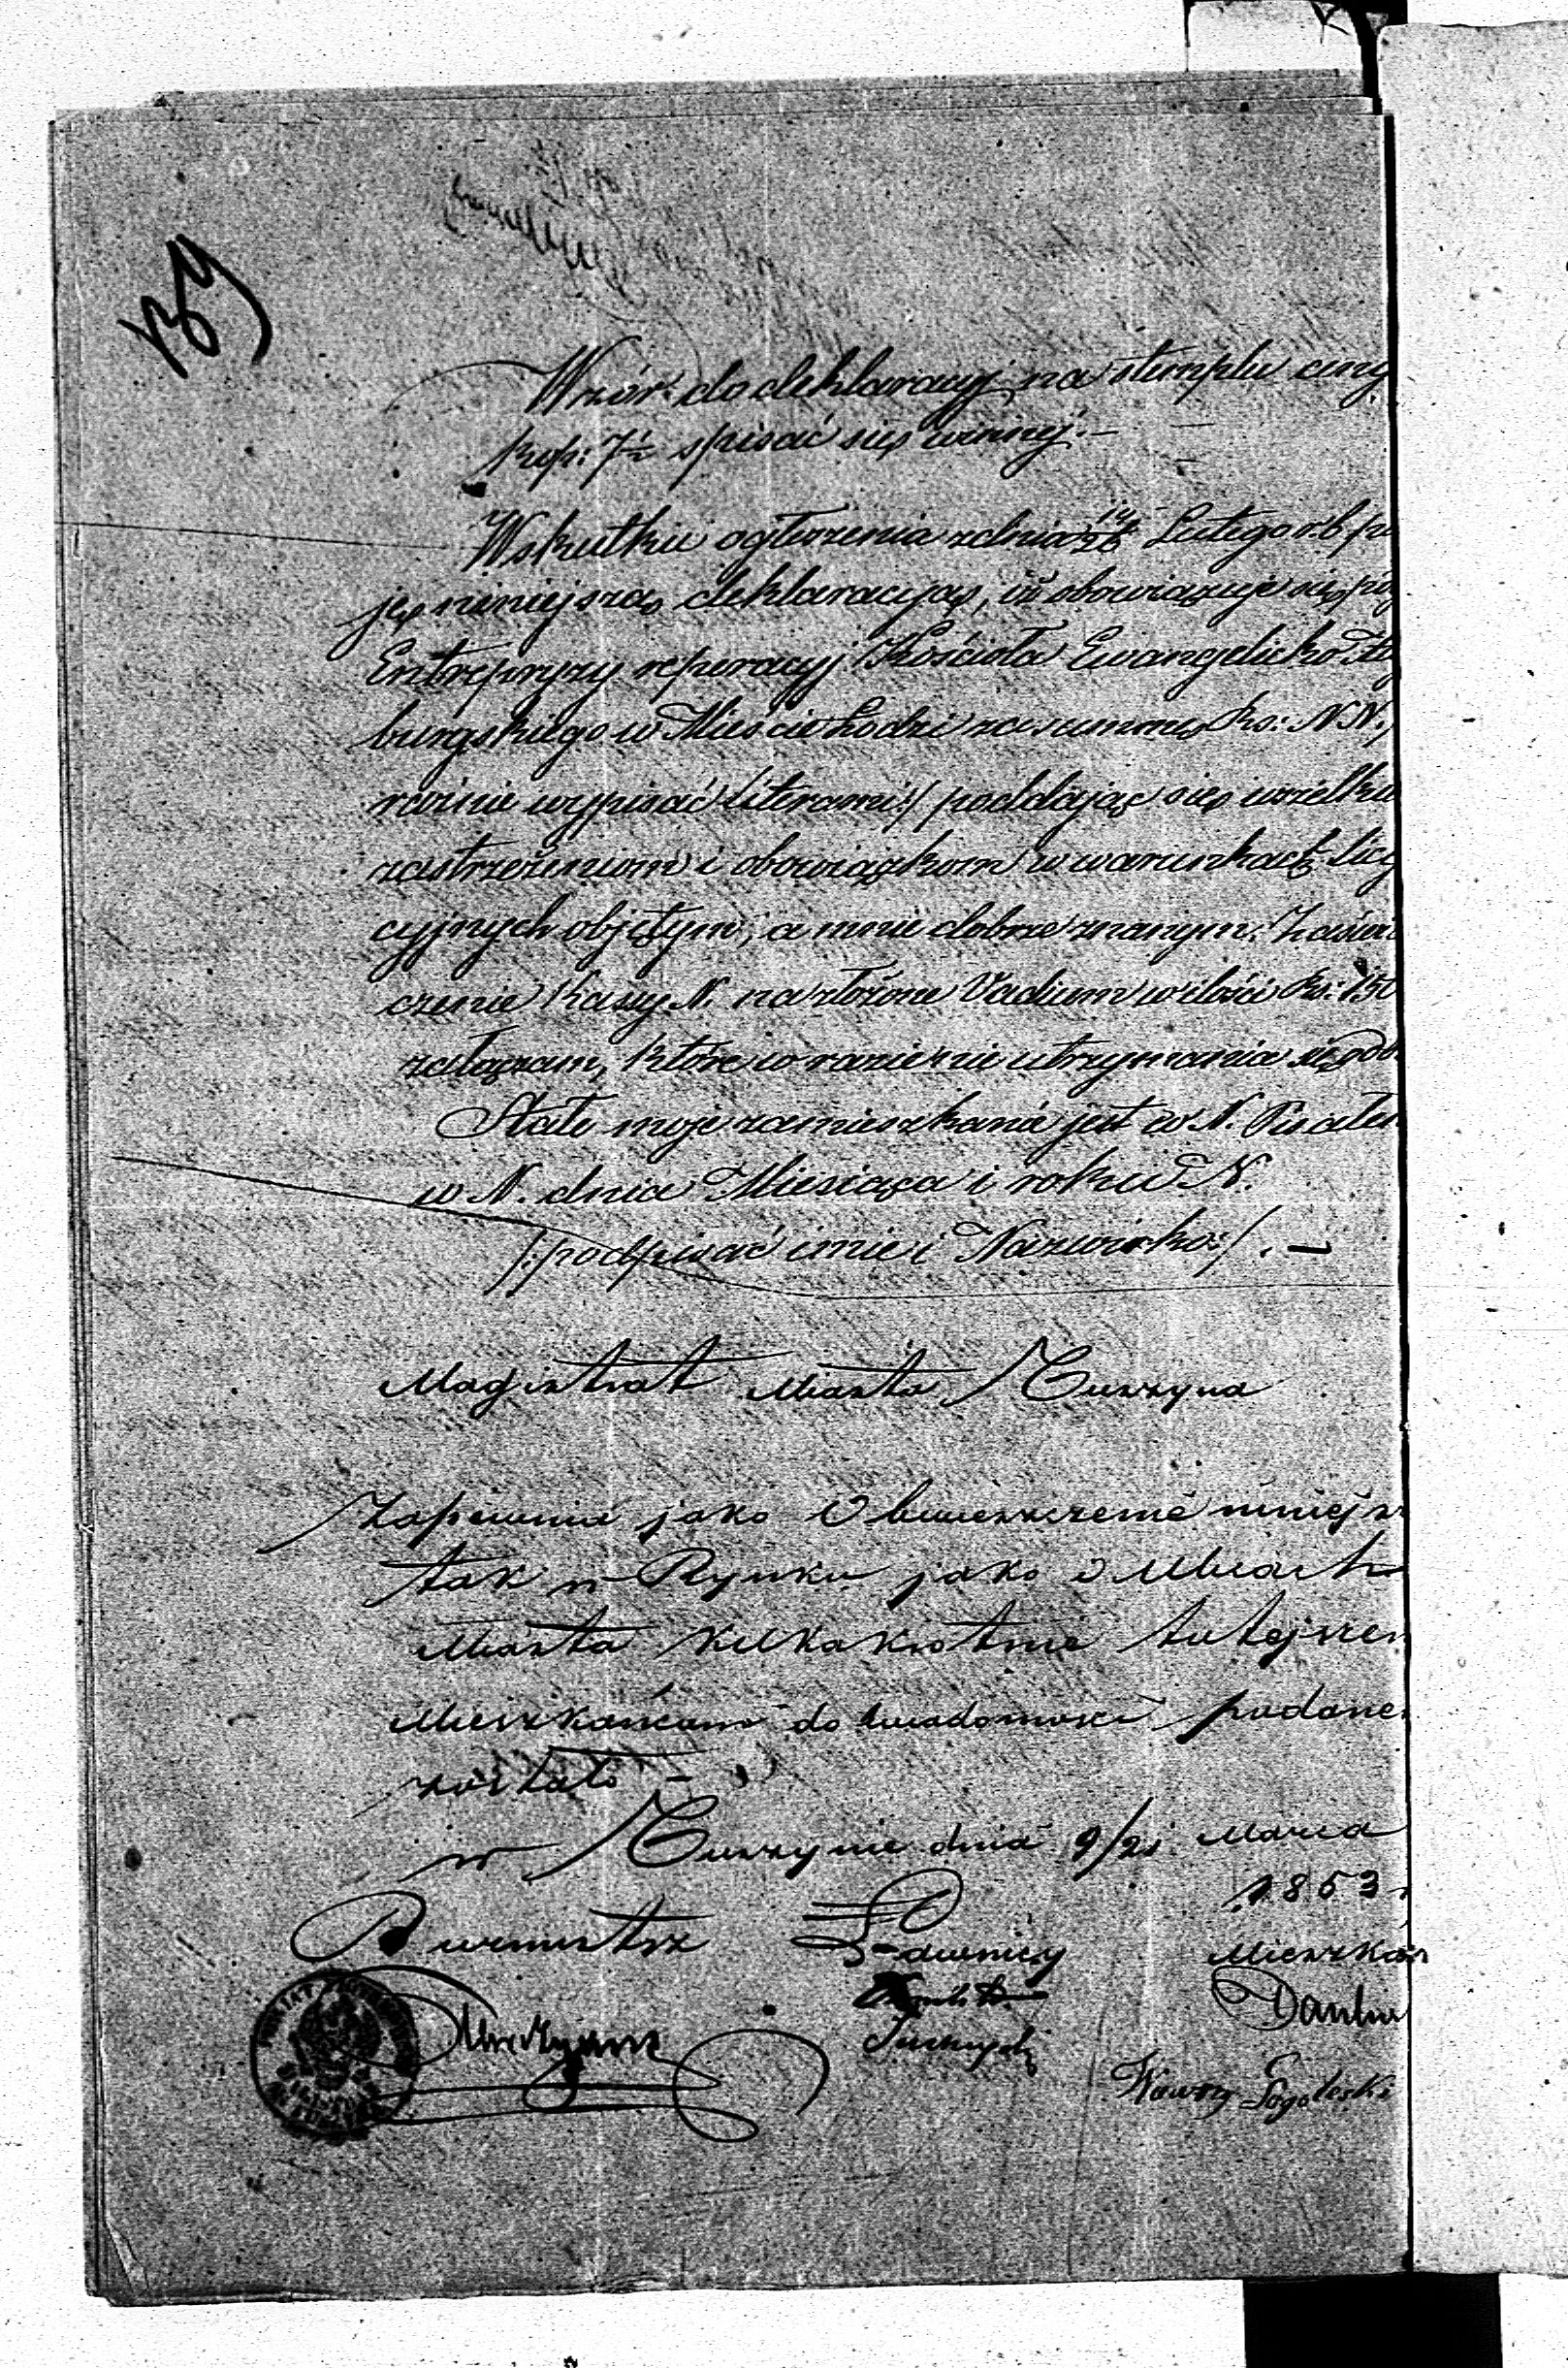 Wzór do deklaracyj na stemplu ceny
kop: 7½ spisać się winnéj.—
Wskutku ogłoszenia z dnia 14/26 Lutego r. b. po
ję niniejszą deklaracyją, iż obowiązuje się po
Entrepryzy reperacyj Kościoła Ewangelicko A
burgskiego w Mieście Łodzi za summę Rs: N.N.
raźnie wypisać literami:/ poddając się wszelkim
zastrzeżeniom i obowiązkom w warunkach Licy
cyjnych objętym, a mnie dobrze znanym. Zaświad
czenie Kassy N. na złożone Vadium w ilości Rs: 150
załączam, które w razie nie utrzymania się
Stałe moje zamieszkanie jest w N. Pisałem
w N. dnia Miesiąca i roku N.
/:podpisać imie i Nazwisko:/. —
Magistrat Miasta Tuszyna
Zapewnia jako Obwieszczenie niniejsz
tak w Rynku jako o Ulicach
Miasta kilkakrotnie tutejszem
Mieszkańcom do wiadomości podane
zostało —
w Tuszynie dnia 9/21 Marca
1853
Burmistrz Ławnicy Mieszkań
Wawrz